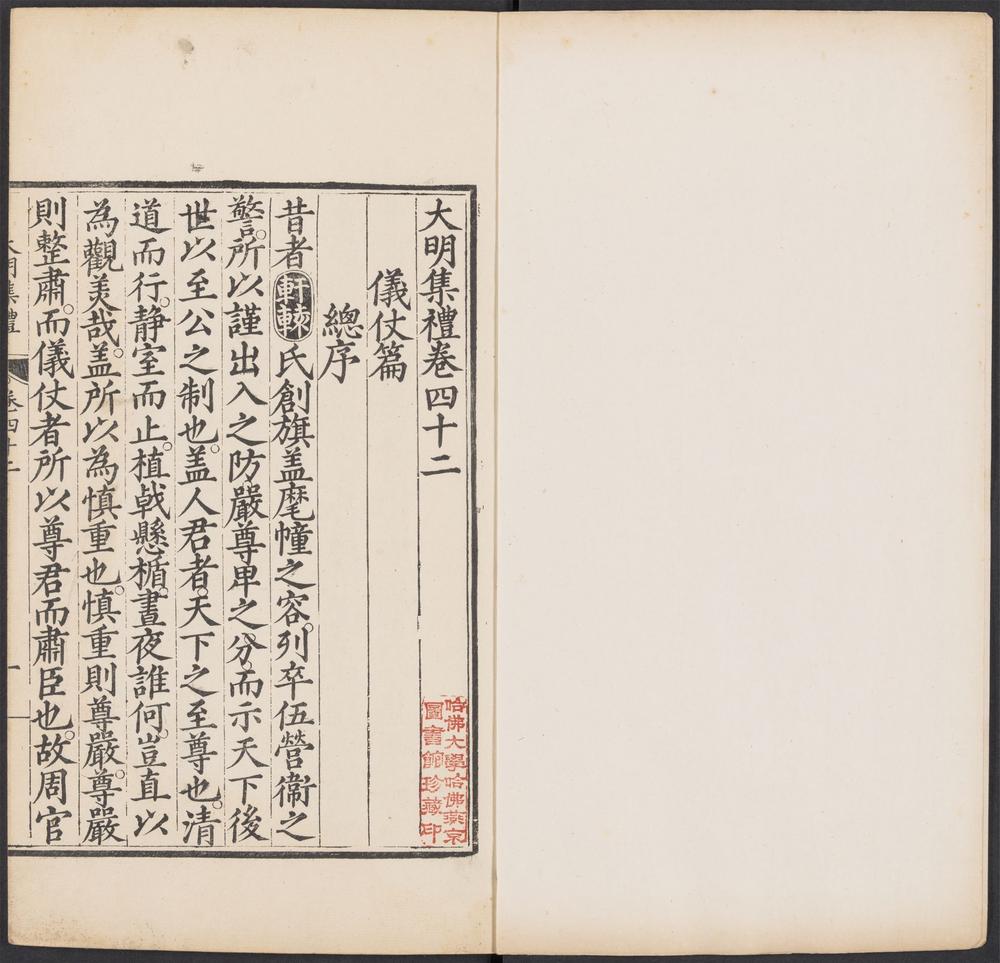 大明集禮卷四十二
儀仗篇
總序
昔者軒轅氏創旗盖麾幢之容列卒伍營衞之
警所以謹出入之防嚴尊卑之分而示天下後
世以至公之制也盖人君者天下之至尊也清
道而行静室而止植戟懸楯晝夜誰何豈直以
為觀美哉盖所以為慎重也慎重則尊嚴尊嚴
則整肅而儀仗者所以尊君而肅臣也故周官
大明集禮 卷四十二 一
哈佛大學哈佛燕京
圖書館珍藏印